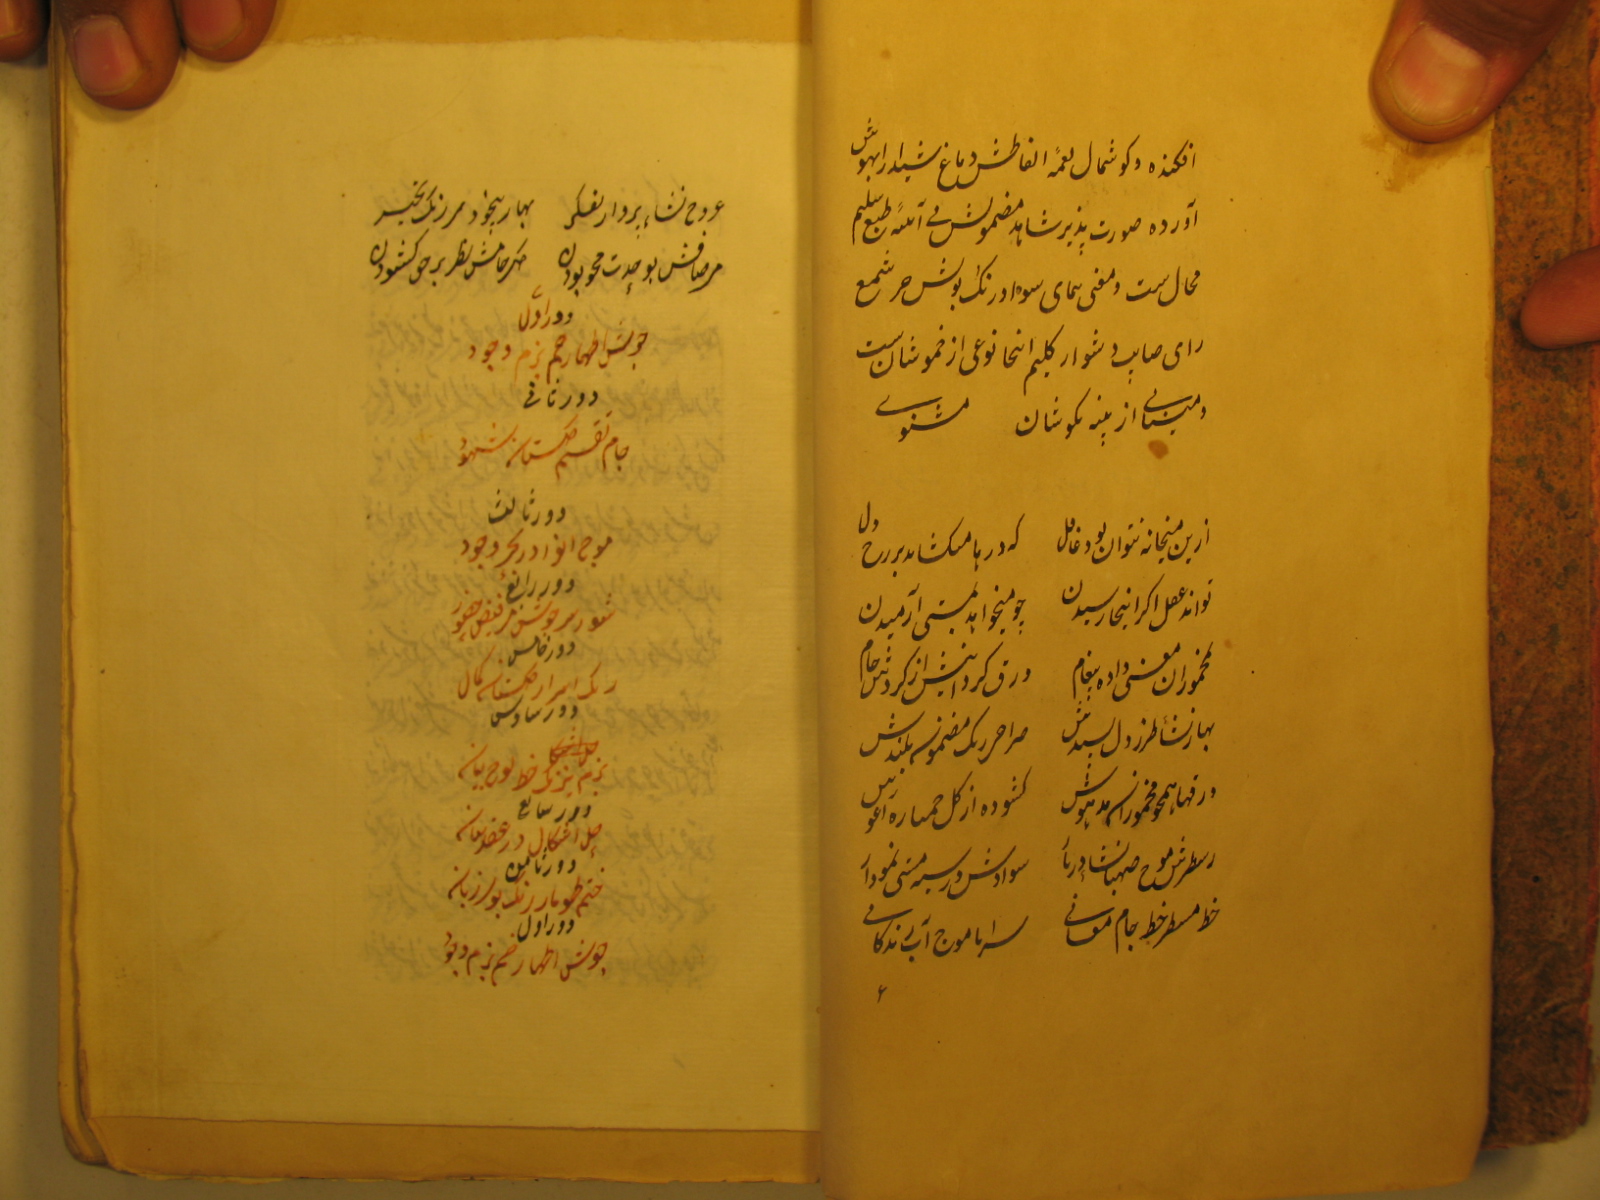 افکنده و گوشمال نغمهٔ الفاظش دماغ شیدا را بیهوش
آورده صورت پذیر شاهد مضمونش بی آئینهٔ طبع سلیم
محال ست و معنی سیمای سواد رنگ بویش جز شمع
رای صایب دشوار کلیم اینجا نوعی از خموشان ست
و مینایی از پنبه بگوشان مثنوی
ازین میخانه نتوان بود غافل که درها میکشاید بر رخ دل
تواند عقل اگر اینجا رسیدن چو میخواهد بمستی آرمیدن
بمخموران معنی داده پیغام ورق گردانیش از گردش جام
بهار نشأ طرز دل پسندش صراحی رنگ مضمون بلندش
ورقها همچو مخموران مدهوش کشوده از گل خمیازه آغوش
ز سطرش موج صهبا نشأ در بار سوادش در سیه مستی نمودار
خط مسطر خط جام معانی سراپا موج آب زندگانی
۶
عروج نشاء پرداز تفکر بهار بیخود مز رنگ تحیر
می صافش بوحدت محو بودن خم جامش نظر بر حق کشودن
دور اول
جوش اظهار خم بزم وجود
دور ثانی
جام تقسیم خمستان شهود
دور ثالث
موج انوار در بحر وجود
دور رابع
شور سرجوش می فیض حضور
دور خامس
رنگ اسرار گلستان کمال
دور سادس
حل اشکال
بزم نیرنگ خط لوح بیان
دور سابع
حل اشکال در عقد بیان
دور ثامن
ختم طومار رنگ بوی زبان
دور اول
جوش اظهار خم بزم وجود